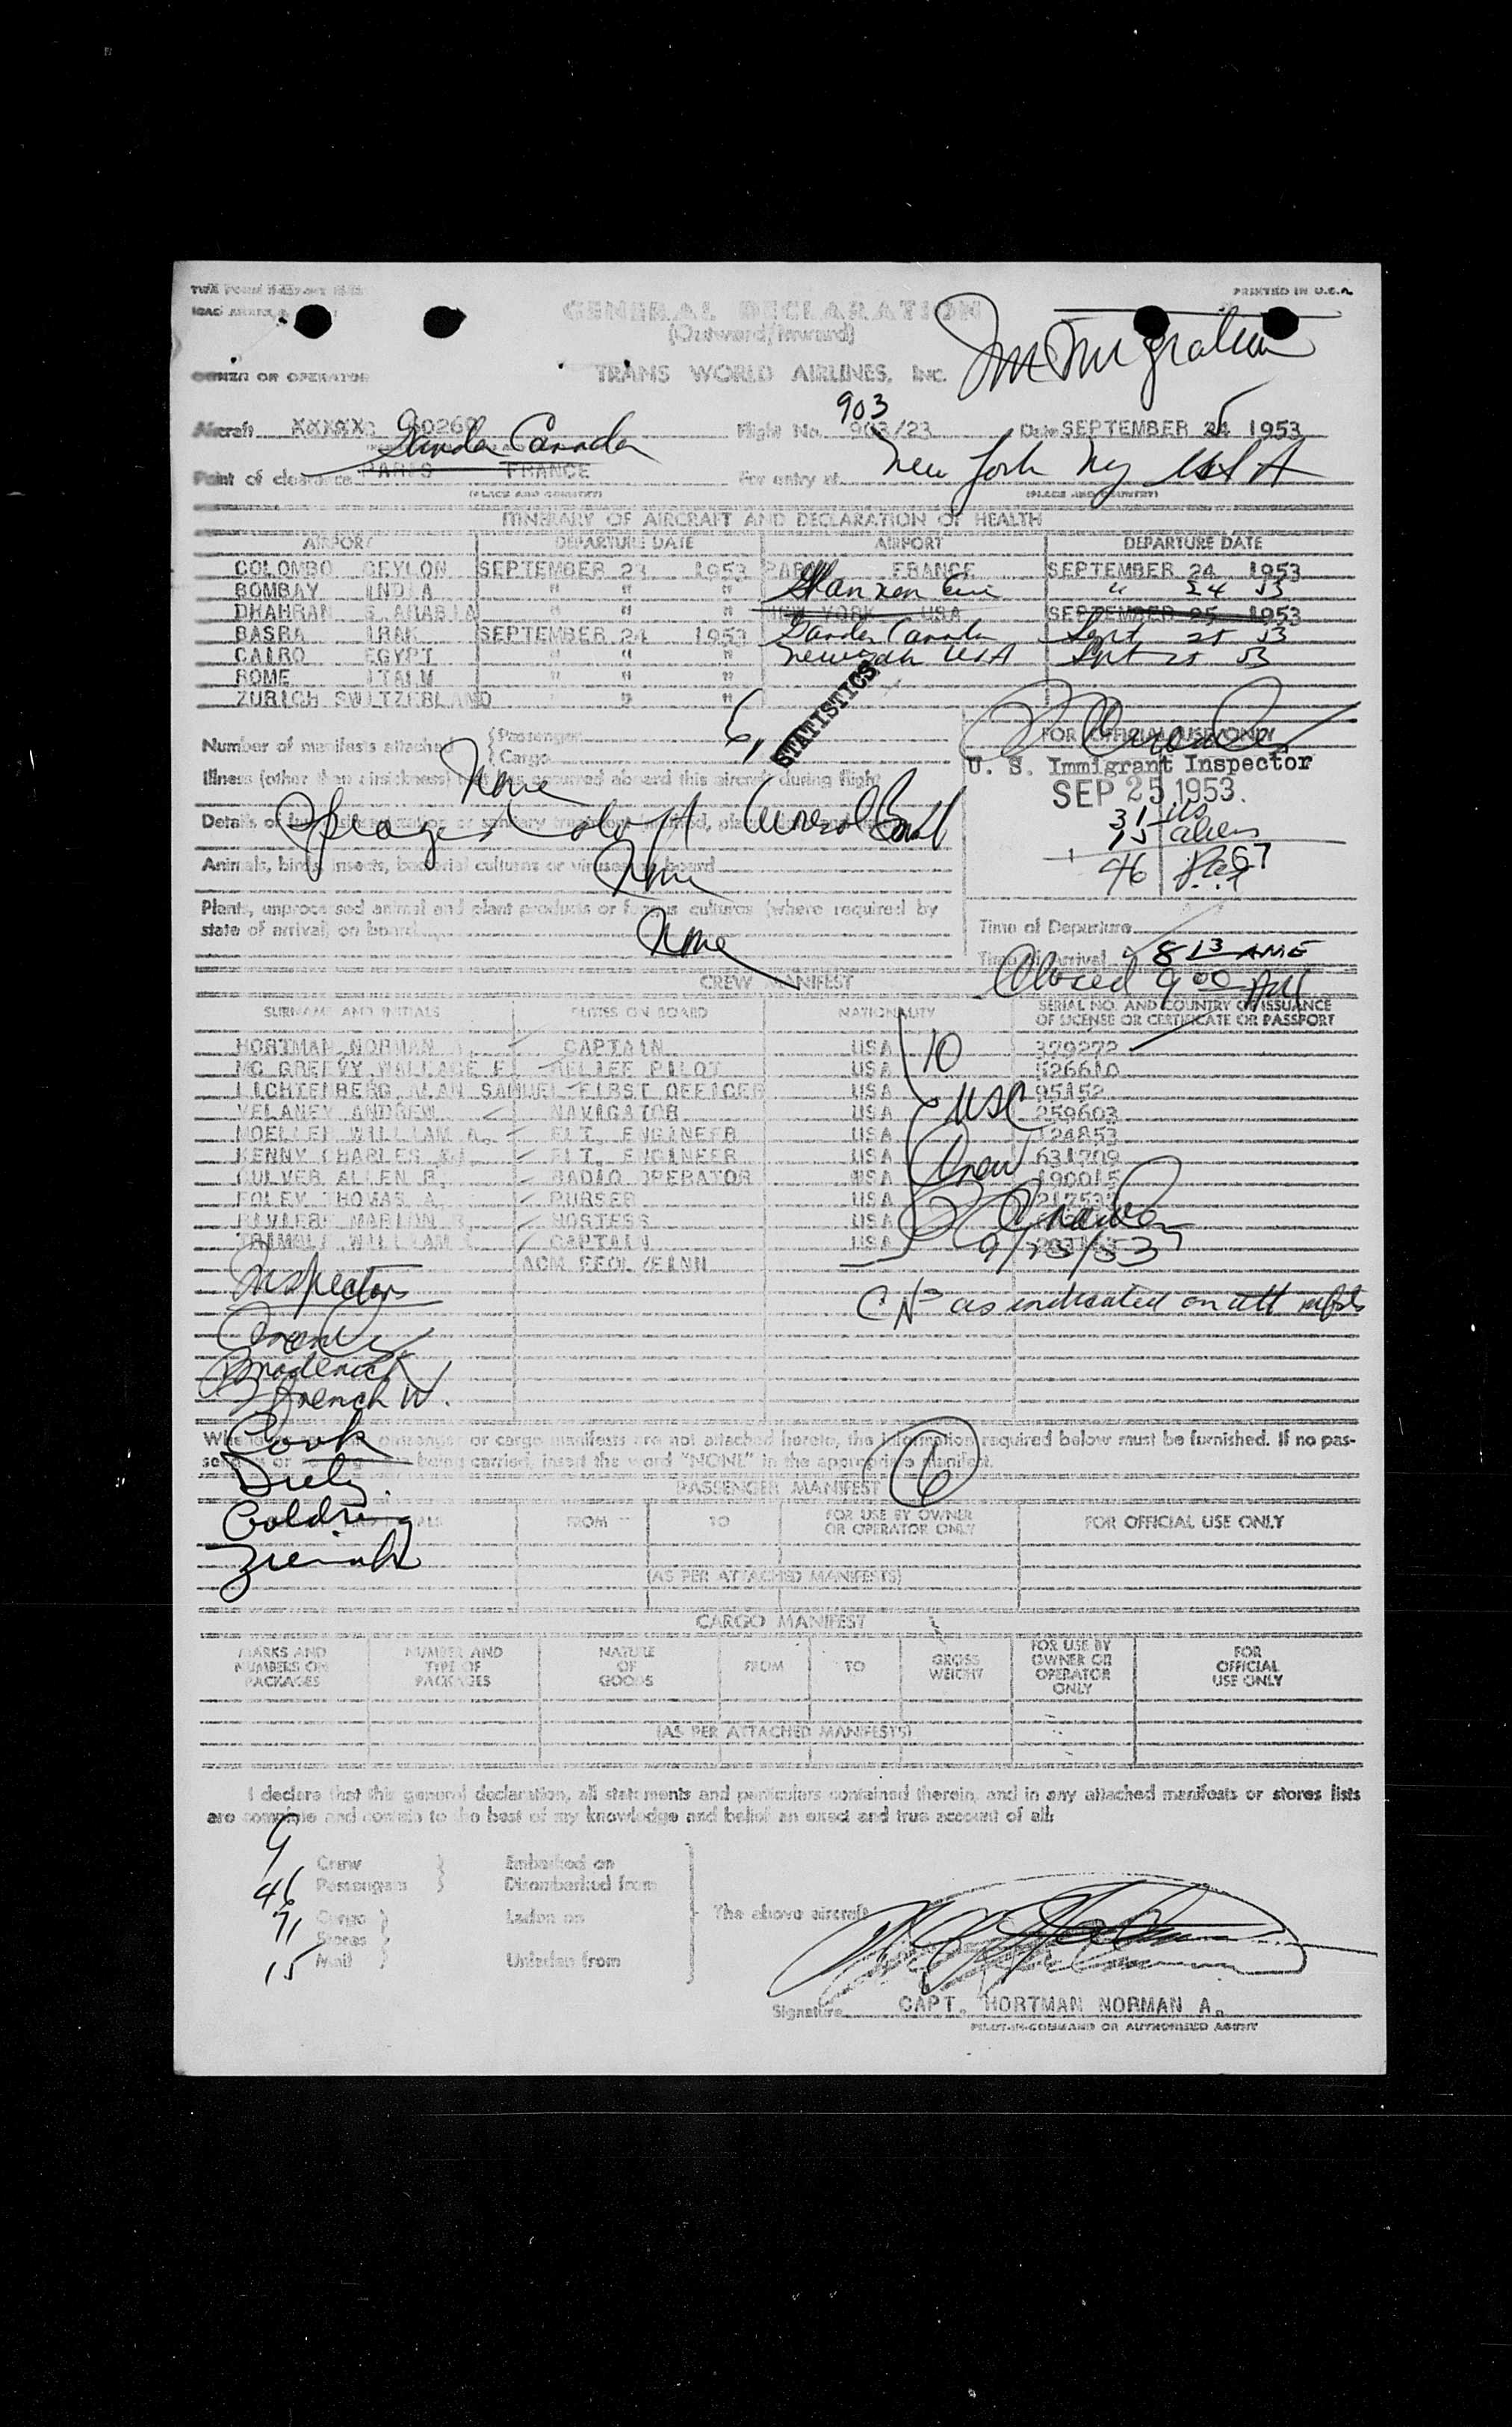 PRINTED IN U.S.A.
GENERAL DECLARATION
(Outward/Inward)
Immigration
OWNER OR OPERATOR TRANS WORLD AIRLINES, INC.
903
Aircraft XXXXX Flight No. 903/23 Date SEPTEMBER 25 1953
Gander Canada
Point of clearance PARIS FRANCE For entry at New York NY USA
(PLACE AND COUNTRY) (PLACE AND COUNTRY)
ITINERARY OF AIRCRAFT AND DECLARATION OF HEALTH
AIRPORT DEPARTURE DATE AIRPORT DEPARTURE DATE
COLOMBO CEYLON SEPTEMBER 23 1953 PARIS FRANCE SEPTEMBER 24 1953
BOMBAY INDIA " " Shannon Eire " 24 53
DHAHRAN S. ARABIA " " NEW YORK USA SEPTEMBER 25 1953
BASRA IRAK SEPTEMBER 24 1953 Gander Canada Sept 25 53
CAIRO EGYPT " " New York USA Sept 25 53
ROME ITALY " "
ZURICH SWITZERLAND " "
STATISTICS
Number of manifests attached { Passenger 6
{ Cargo
FOR OFFICIAL USE ONLY
U. S. Immigrant Inspector
SEP 25 1953
31 US
15 aliens
46
Illness (other than airsickness) that has occurred aboard this aircraft during flight
None
Animals, birds, insects, bacterial cultures or viruses on board
None
Plants, unprocessed animal and plant products or fungus cultures (where required by
state of arrival) on board
None
Time of Departure
Time of Arrival 8 13 AME
Closed 9 00 AM
CREW MANIFEST
SURNAME AND INITIALS DUTIES ON BOARD NATIONALITY SERIAL NO. AND COUNTRY OF ISSUANCE
OF LICENSE OR CERTIFICATE OR PASSPORT
HORTMAN NORMAN A. CAPTAIN USA 379272
MC GREEVY WALLACE F. RELIEF PILOT USA 526610
LICHTENBERG ALAN SAMUEL FIRST OFFICER USA 95152
VELANEY ANDREW NAVIGATOR USA 259603
MOELLER WILLIAM A. FLT. ENGINEER USA 124853
KENNY CHARLES FLT. ENGINEER USA 631709
CULVER ALLEN R. RADIO OPERATOR USA 190015
FOLEY THOMAS A. PURSER USA
RIVIERE MARION HOSTESS USA
TRIMBLE WILLIAM CAPTAIN USA
10
USC
Crew
9/25/53
Inspectors
as indicated on all
Broderick
French W.
Cook
Goldring
Whenever passenger or cargo manifests are not attached hereto, the information required below must be furnished. If no pas-
sengers or being carried, insert the word "NONE" in the appropriate manifest.
6
PASSENGER MANIFEST
FROM TO FOR USE BY OWNER
OR OPERATOR ONLY FOR OFFICIAL USE ONLY
(AS PER ATTACHED MANIFESTS)
CARGO MANIFEST
MARKS AND
NUMBERS ON
PACKAGES NUMBER AND
TYPE OF
PACKAGES NATURE
OF
GOODS FROM TO GROSS
WEIGHT FOR USE BY
OWNER OR
OPERATOR
ONLY FOR
OFFICIAL
USE ONLY
(AS PER ATTACHED MANIFESTS)
I declare that this general declaration, all statements and particulars contained therein, and in any attached manifests or stores lists
are complete and contain to the best of my knowledge and belief an exact and true account of all:
9 Crew } Embarked on
46 Passengers } Disembarked from
71 Cargo } Laden on The above aircraft
Stores }
15 Mail } Unladen from
Signature CAPT. HORTMAN NORMAN A.
PILOT-IN-COMMAND OR AUTHORIZED AGENT